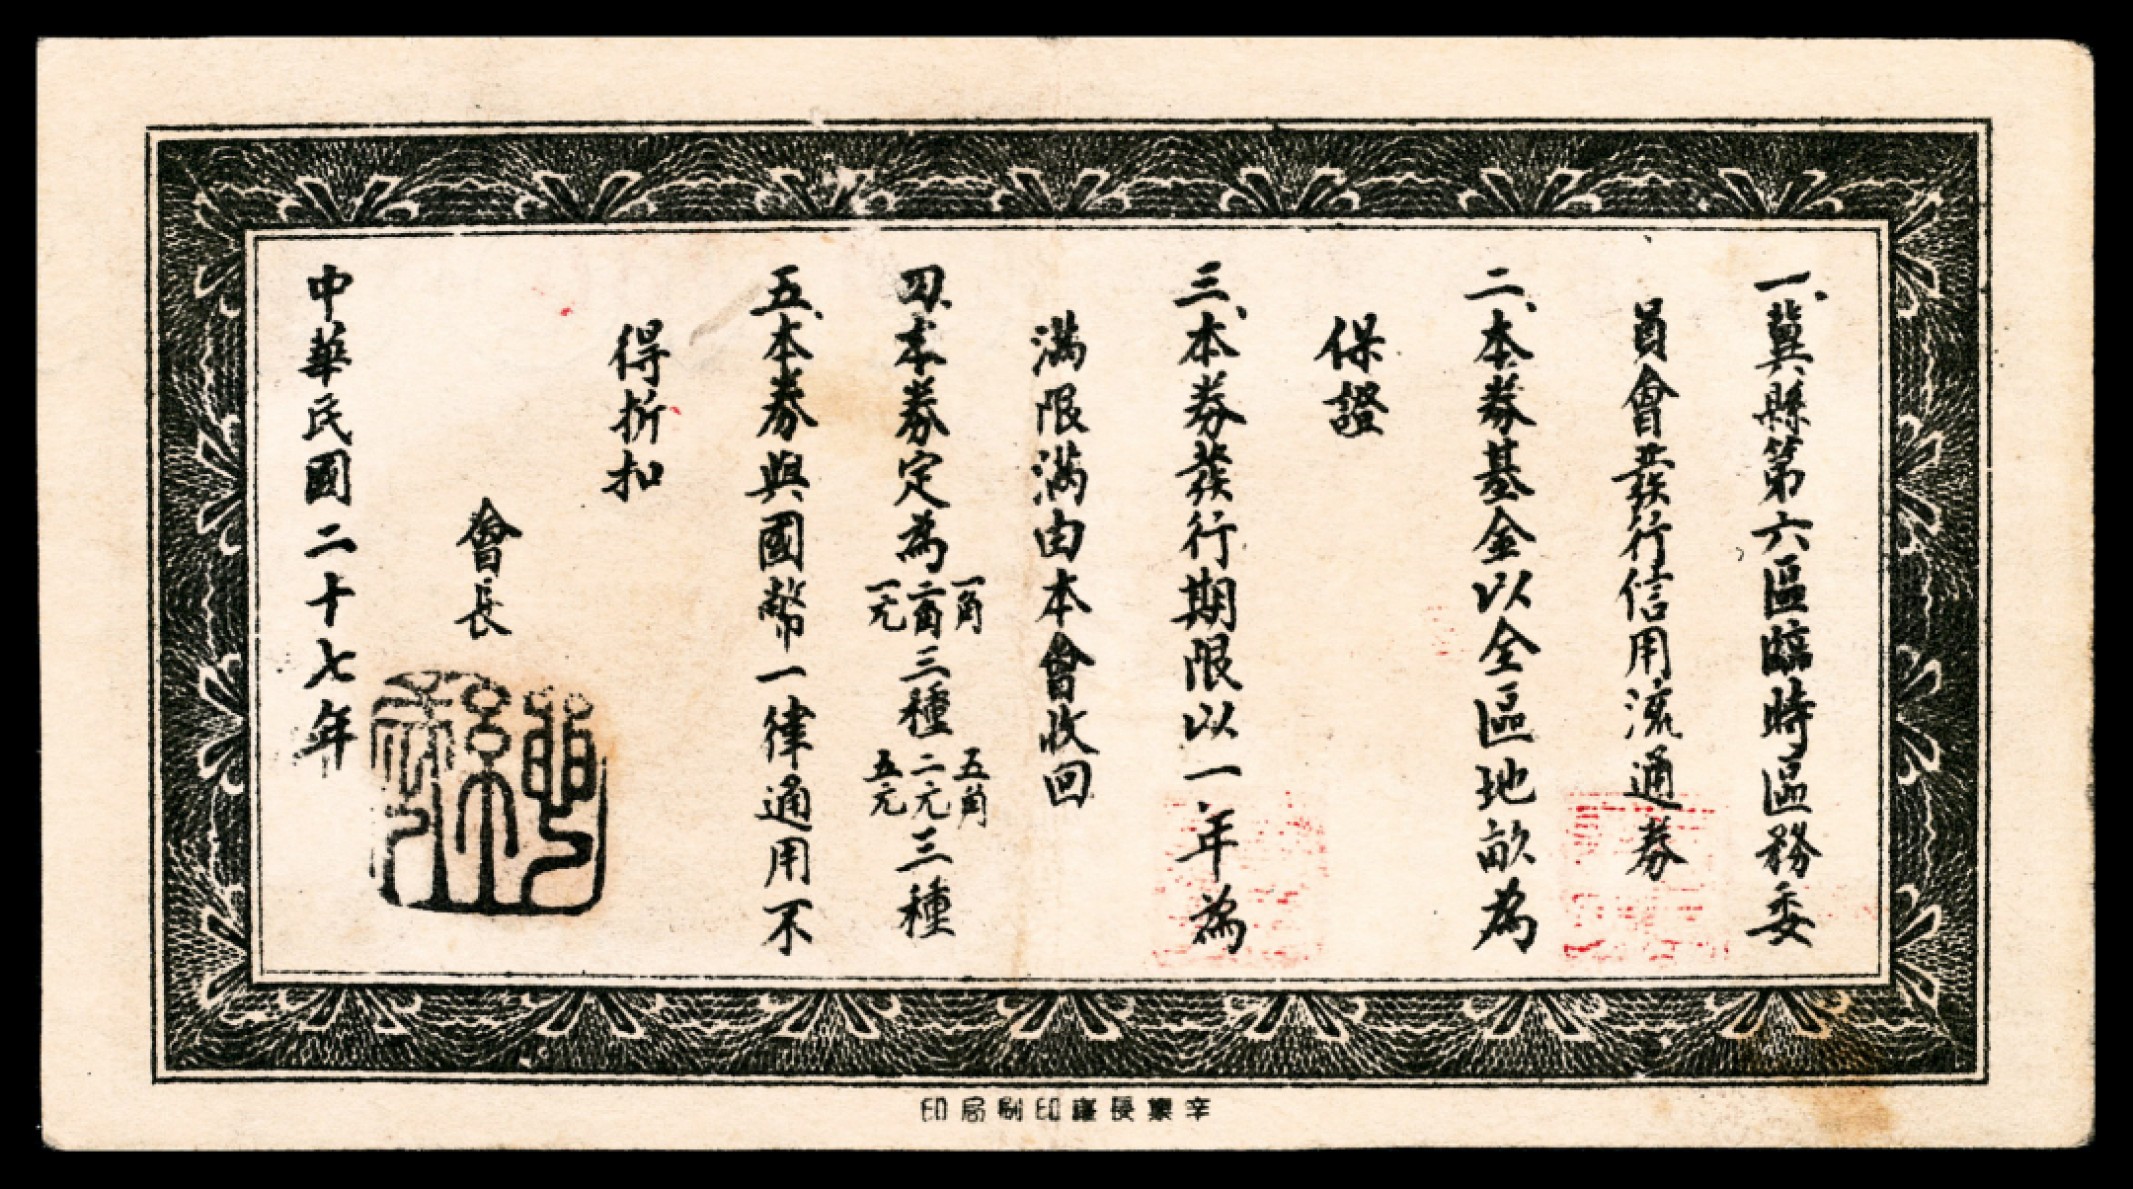 一、冀縣第六區臨時區務委
員會發行信用流通券
二、本券基金以全區地畝為
保證
三、本券發行期限以一年為
滿限滿由本會收回
四、本券定為一角二角一元三種五角二元五元三種
五、本券與國幣一律通用不
得折扣
會長
中華民國二十七年
辛集長臺印刷局印